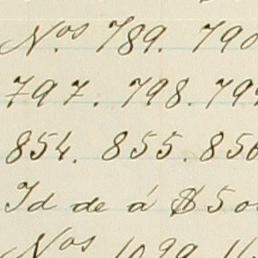 Nos 789. 790
797. 798. 799
854. 855. 856
Id de á $500
Nos 1099. 11